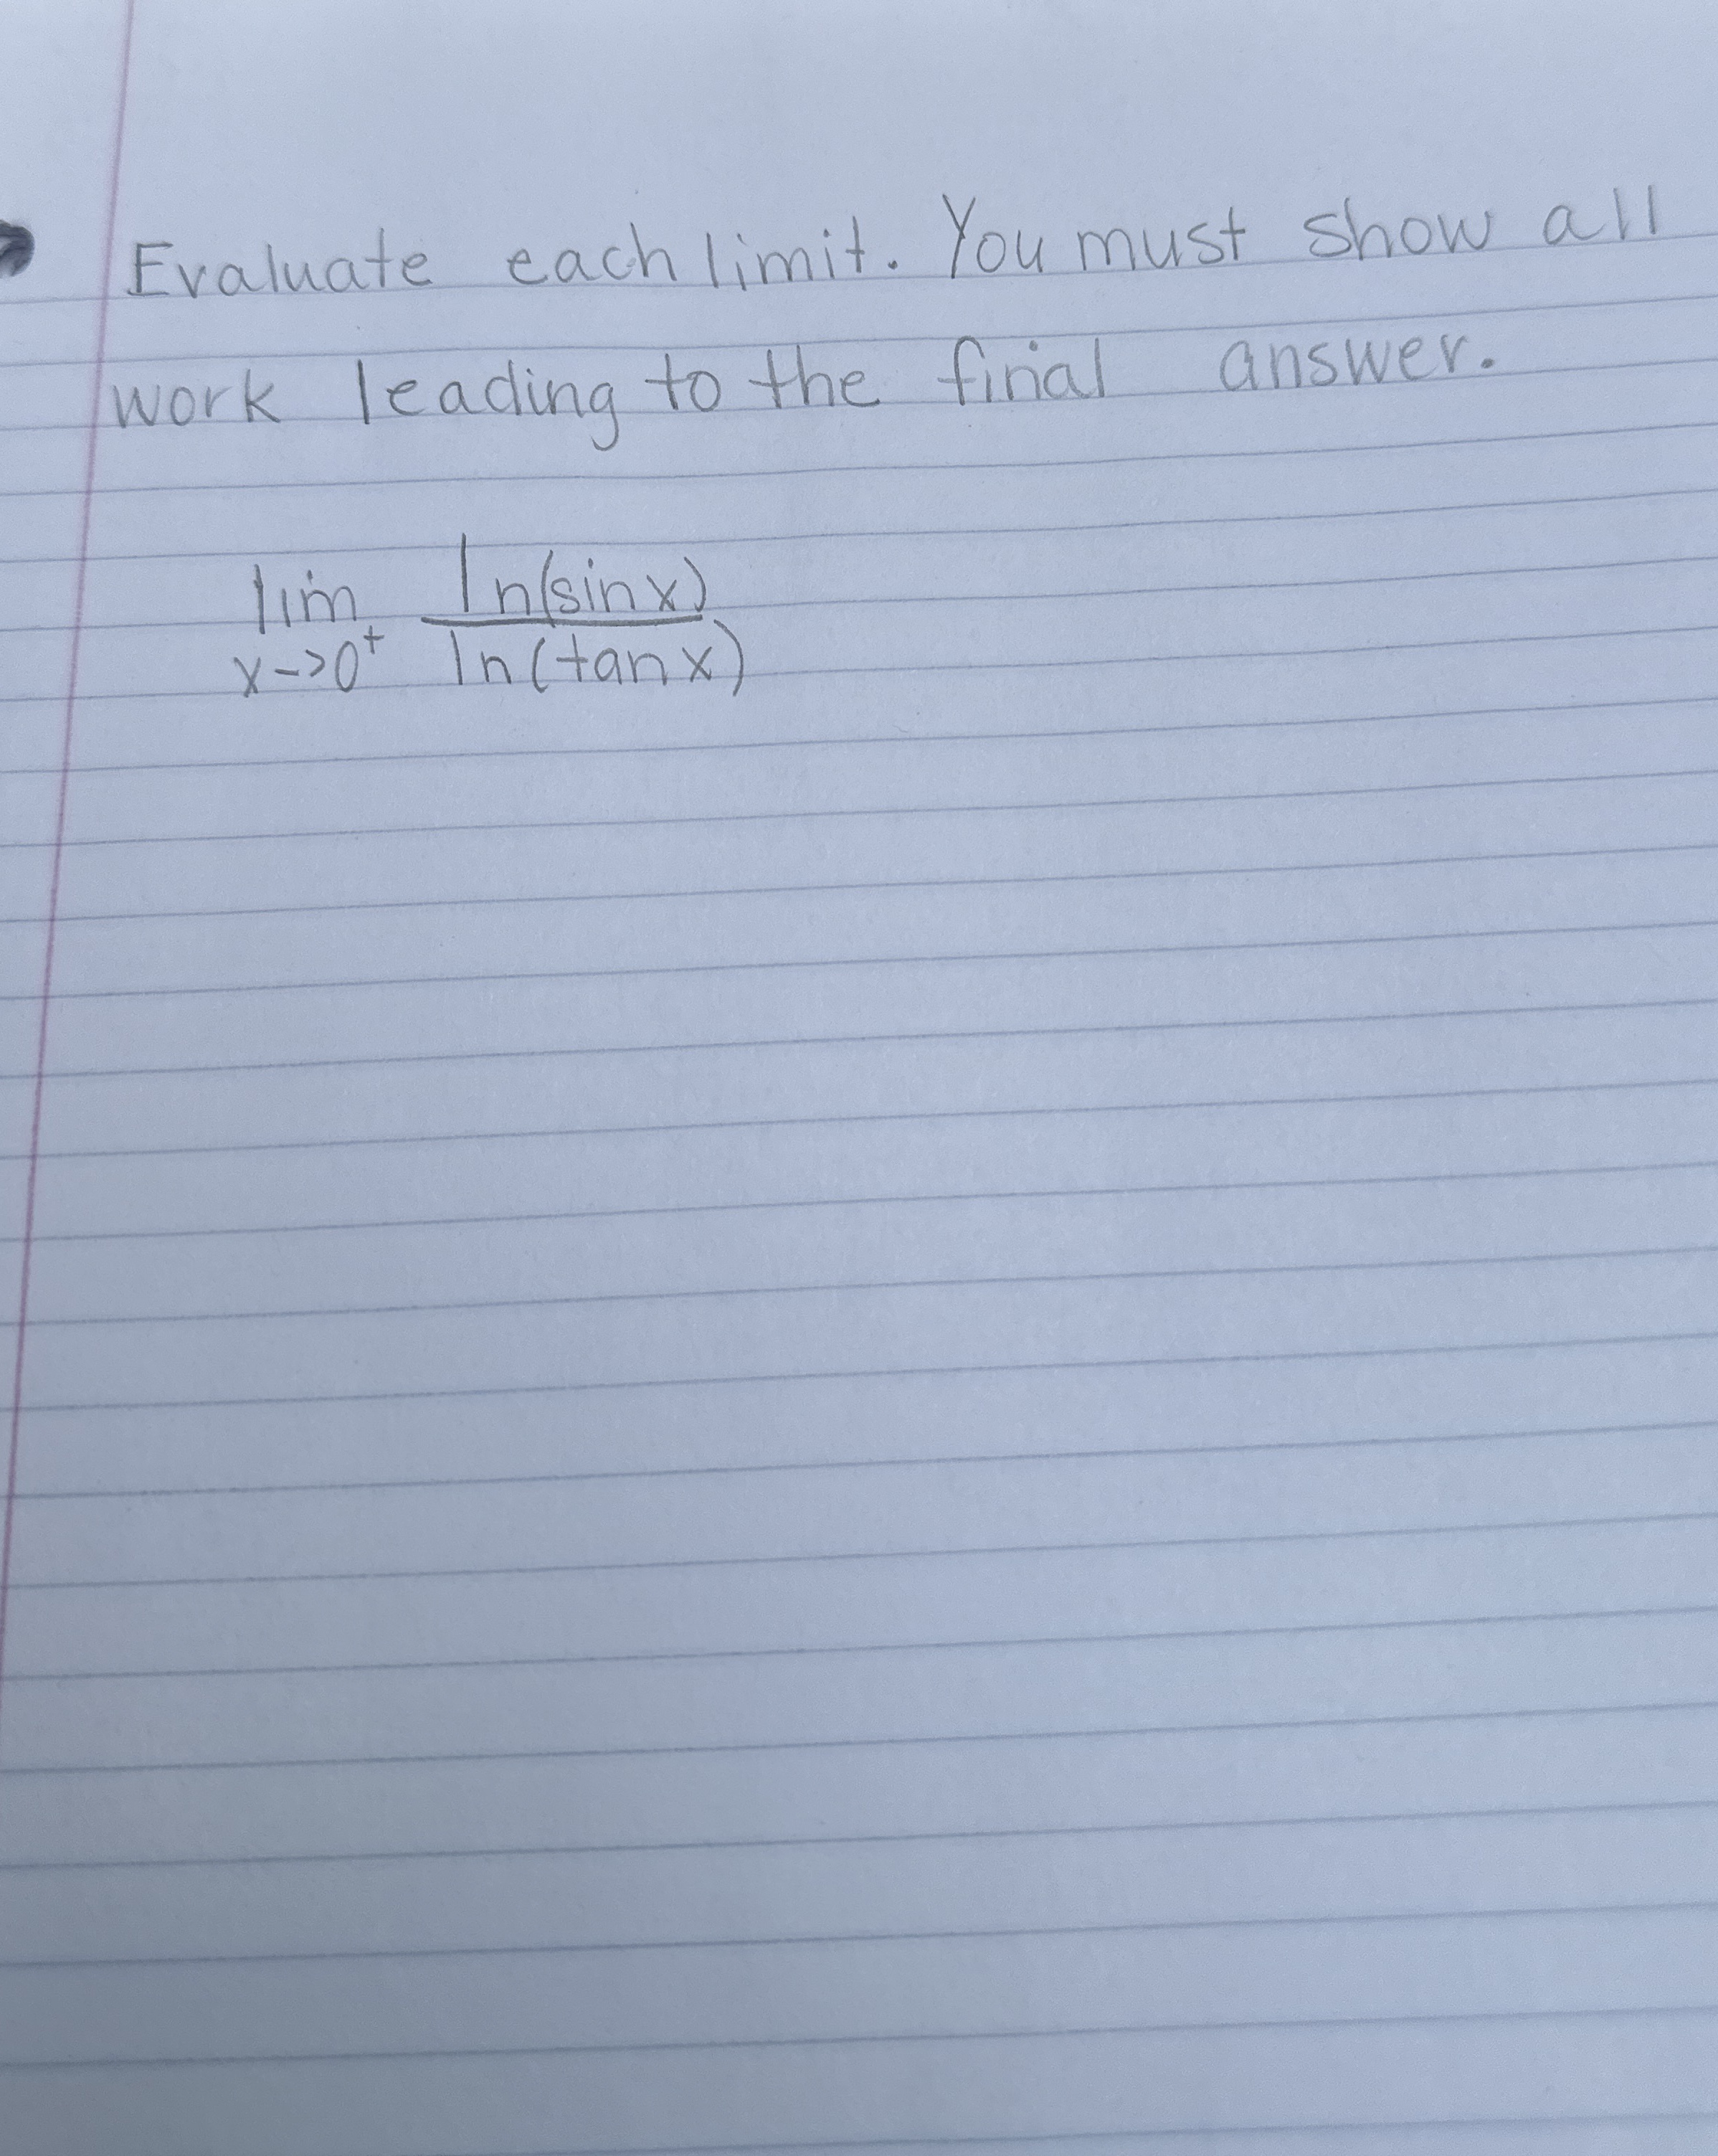 Evaluate each limit. You must show all
work leading to the final answer.
lim ln(sinx)
x->0⁺ ln(tanx)